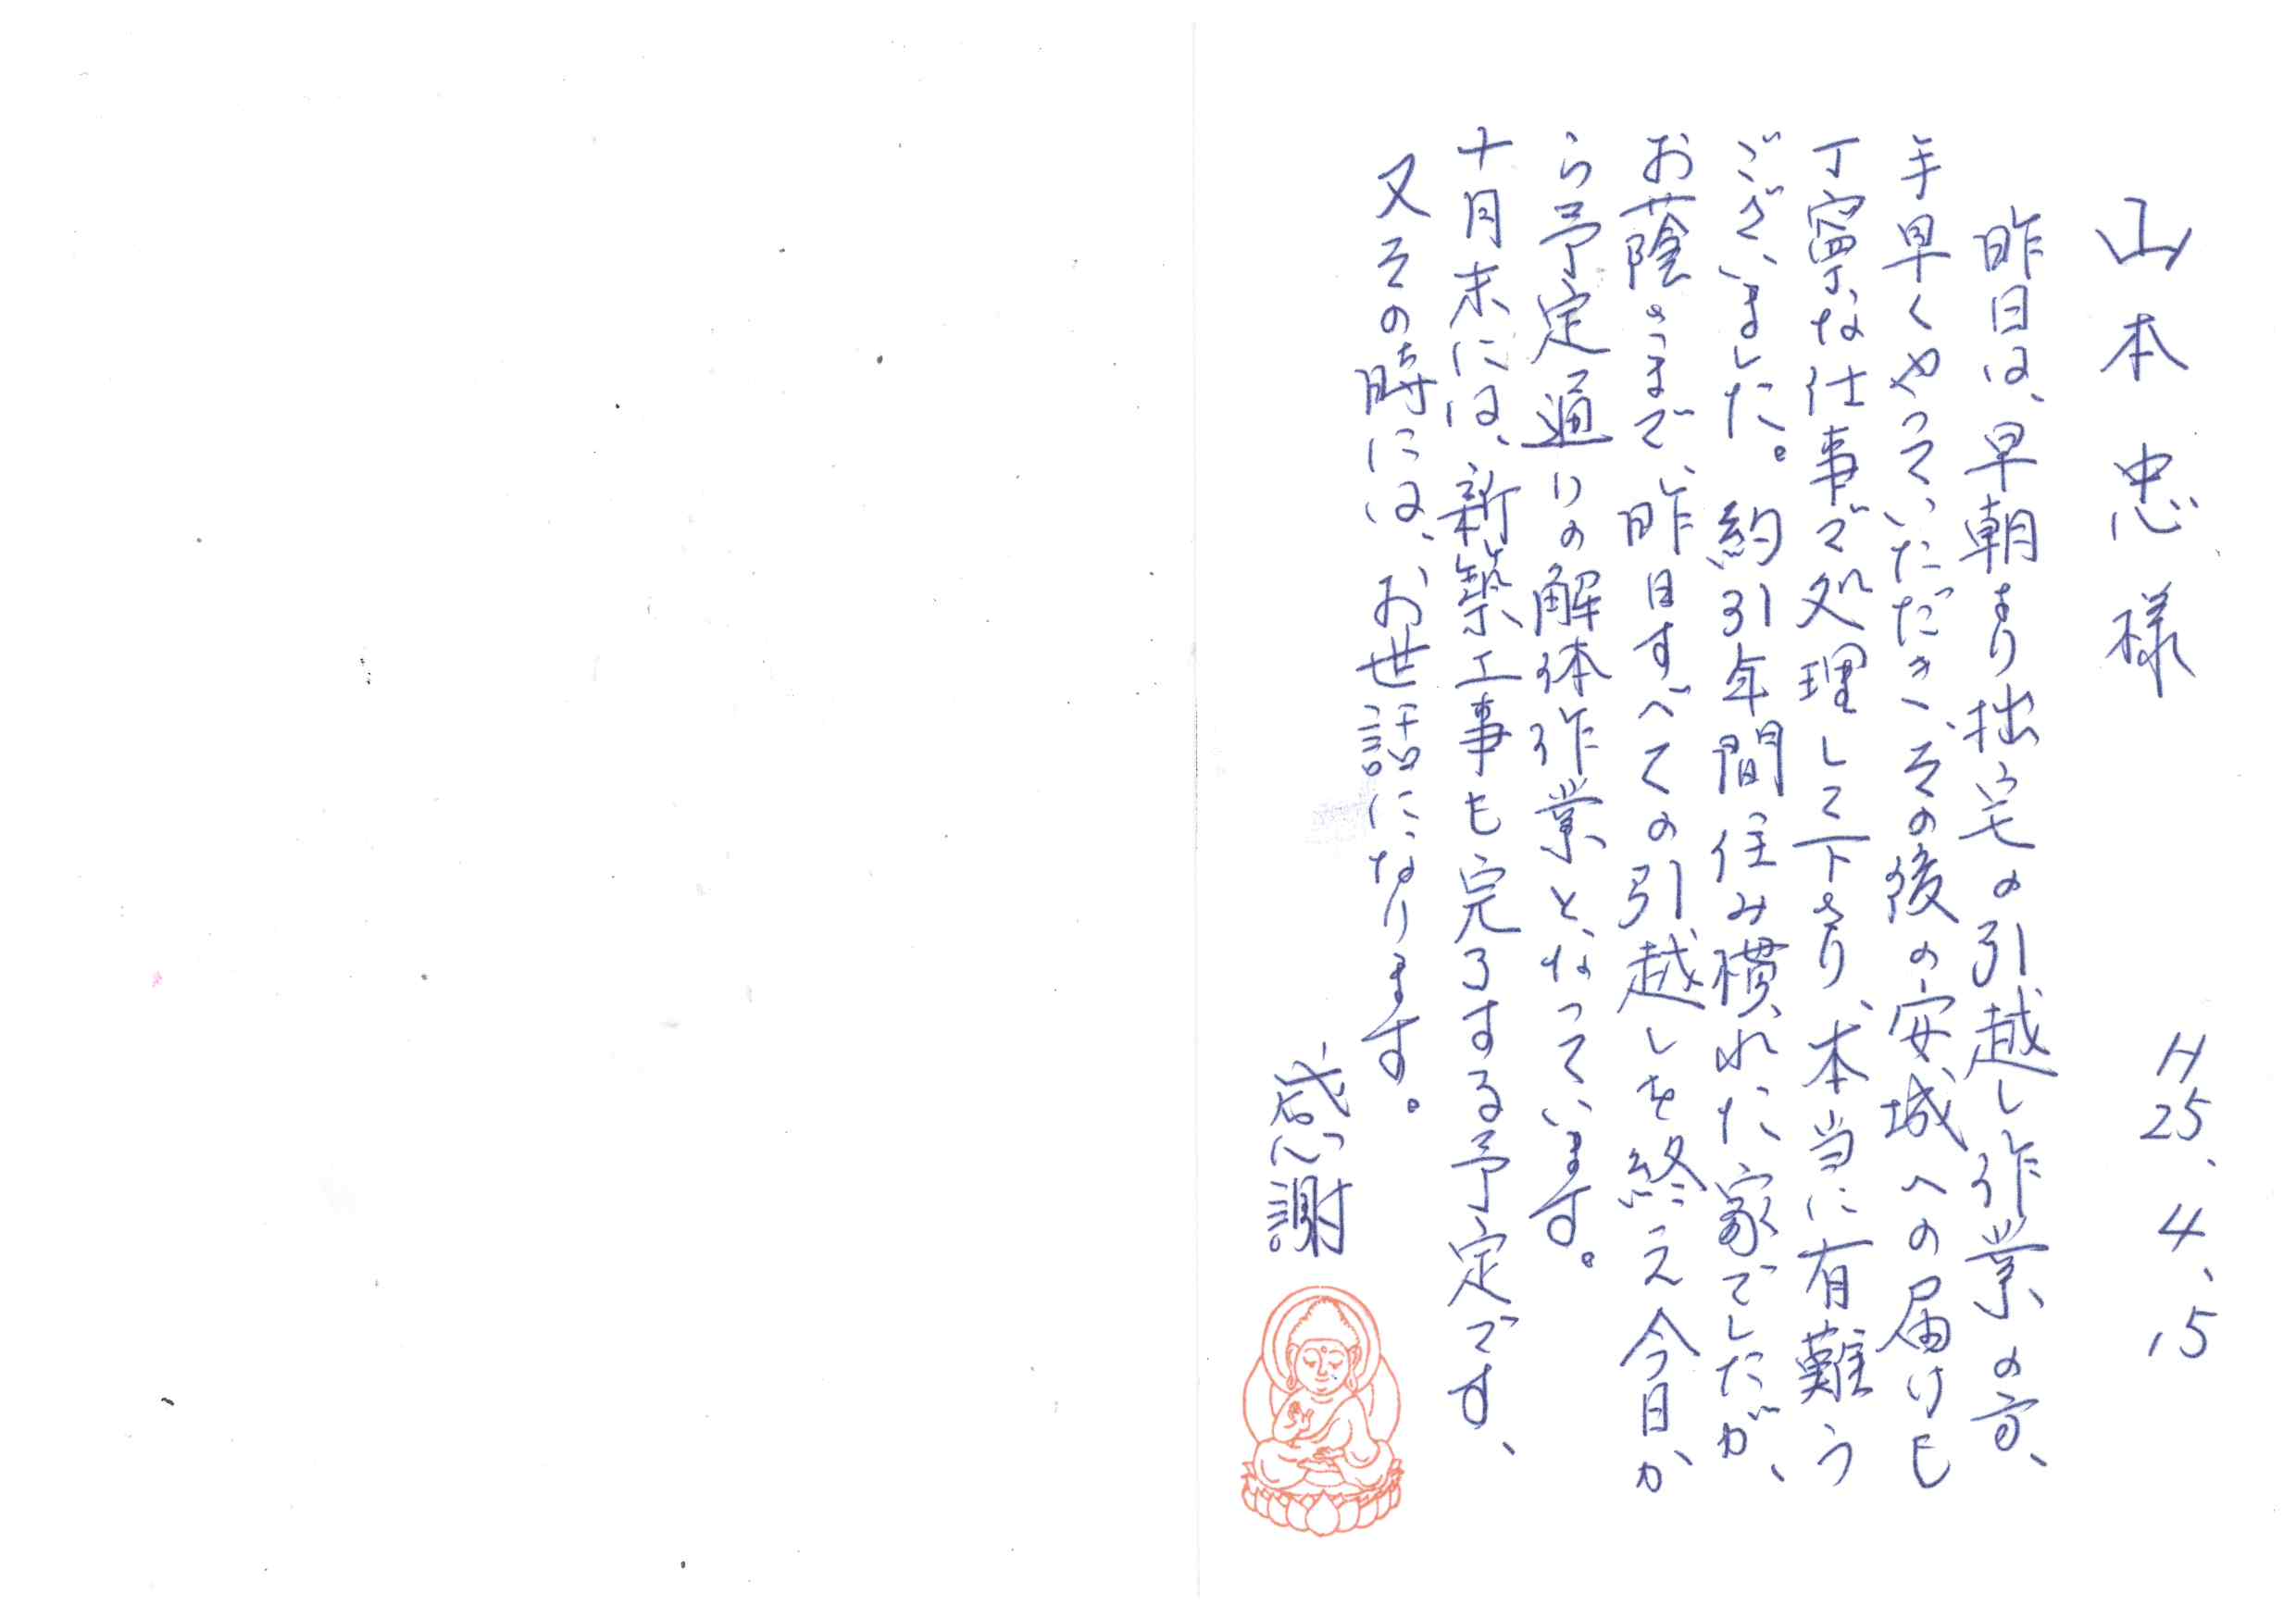 H25、4、15
山本忠様
昨日は、早朝より拙宅の引越し作業の方、
手早くやっていただき、その後の安城への届けも
丁寧な仕事で処理して下さり、本当に有難う
ございました。約31年間住み慣れた家でしたが、
お蔭さまで、昨日すべての引越しを終え今日か
ら予定通りの解体作業となっています。
十月末には、新築工事も完了する予定です、
又その時には、お世話になります。
感謝